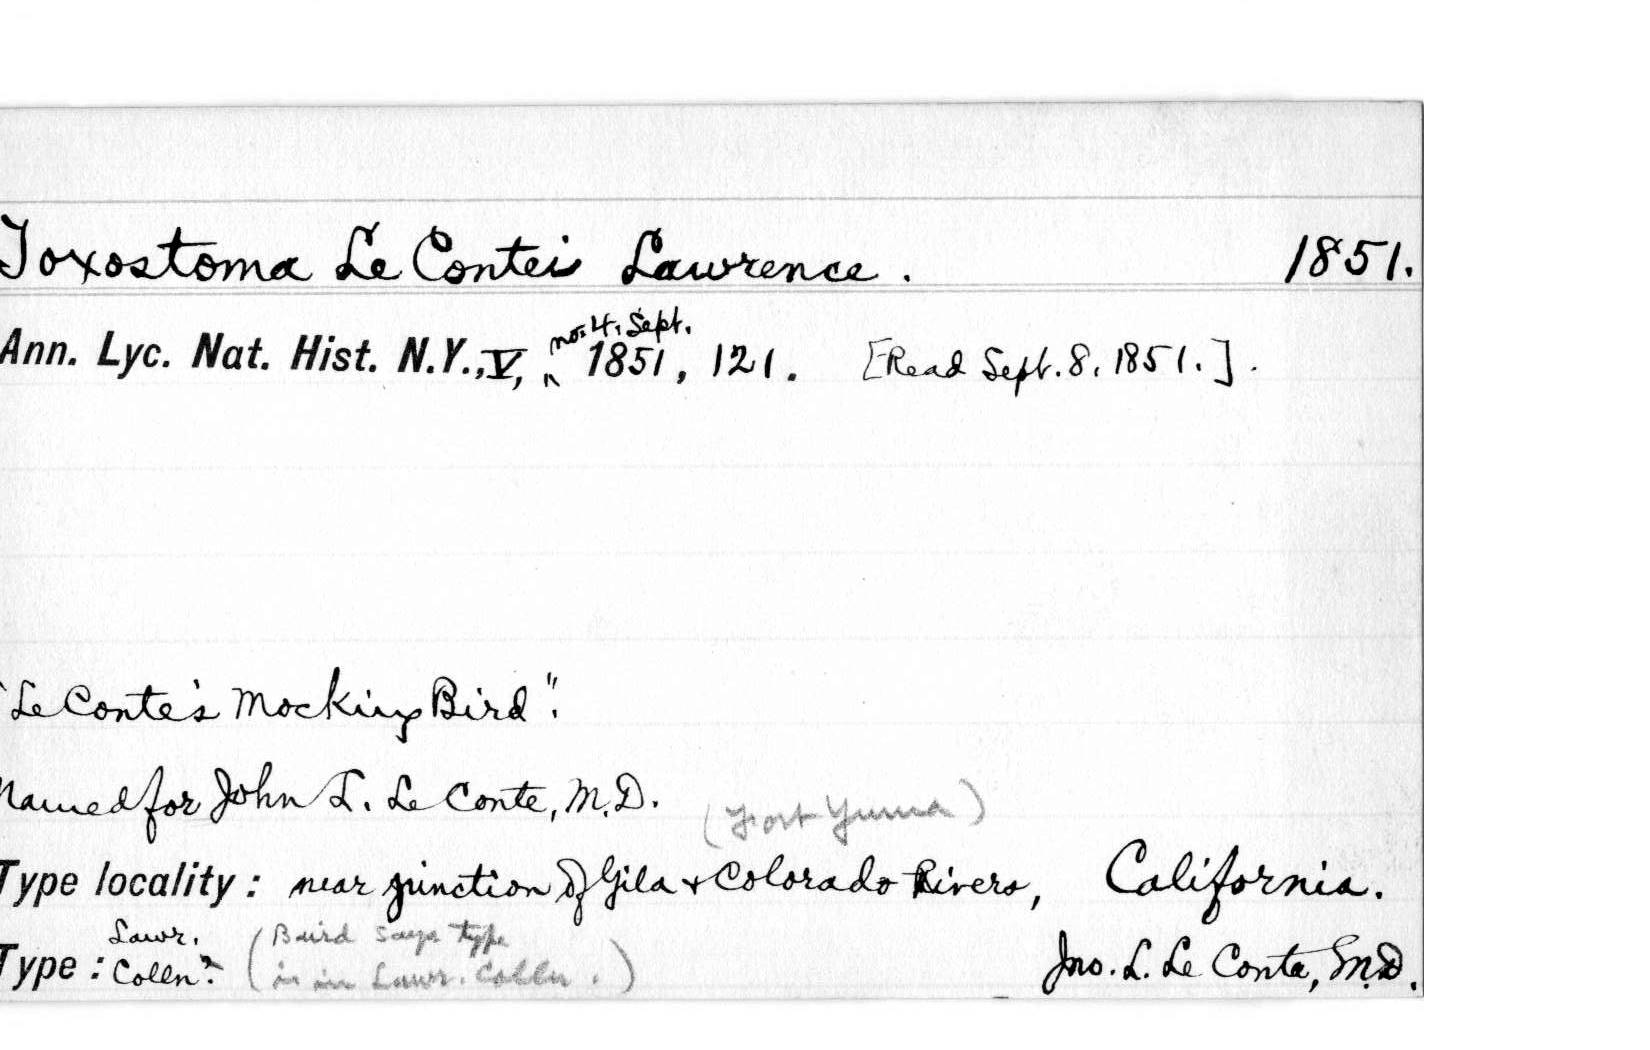 Toxostoma Le Contei Lawrence. 1851.
no. 4, Sept.
Ann. Lyc. Nat. Hist. N.Y., V, ‸ 1851, 121. [Read Sept. 8, 1851.].
"Le Conte's Mocking Bird".
Named for John L. Le Conte, M.D.
(Fort Yuma)
Type locality: near junction of Gila & Colorado Rivers, California.
Lawr. (Baird says type
Type: Colln? is in Lawr. Colln.) Jno. L. Le Conte, M.D.